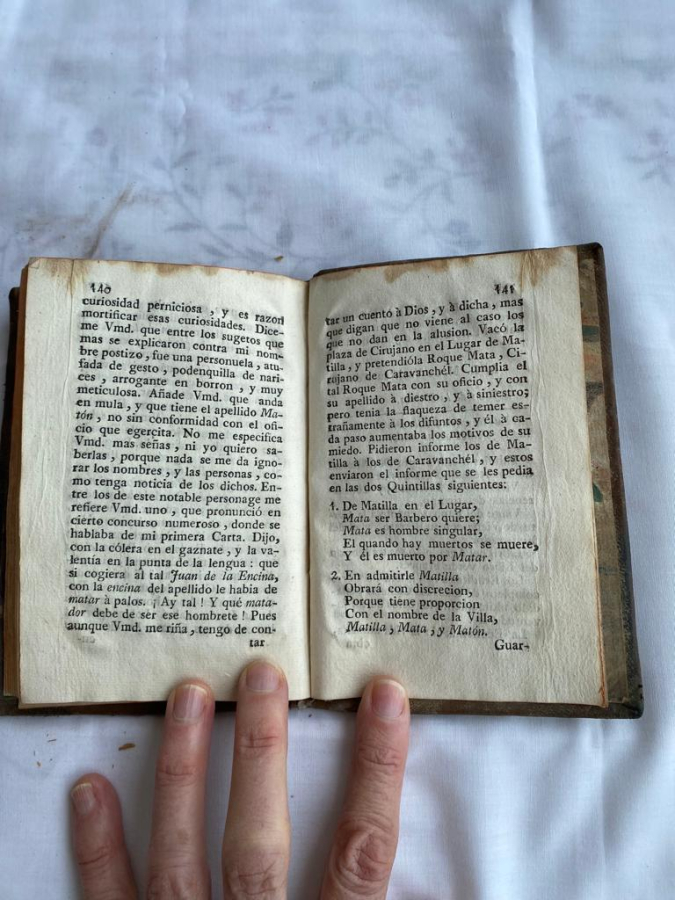 140
curiosidad perniciosa , y es razon
mortificar esas curiosidades. Dice-
me Vmd. que entre los sugetos que
mas se explicaron contra mi nom-
bre postizo , fue una personuela , atu-
fada de gesto , podenquilla de nari-
ces , arrogante en borron , y muy
meticulosa. Añade Vmd. que anda
en mula , y que tiene el apellido Ma-
tón , no sin conformidad con el ofi-
cio que egercita. No me especifica
Vmd. mas señas , ni yo quiero sa-
berlas , porque nada se me da igno-
rar los nombres , y las personas , co-
mo tenga noticia de los dichos. En-
tre los de este notable personage me
refiere Vmd. uno , que pronunció en
cierto concurso numeroso , donde se
hablaba de mi primera Carta. Dijo,
con la cólera en el gaznate , y la va-
lentía en la punta de la lengua : que
si cogiera al tal Juan de la Encina,
con la encina del apellido le habia de
matar à palos. ¡ Ay tal ! Y qué mata-
dor debe de ser ese hombrete ! Pues
aunque Vmd. me riña , tengo de con-
tar
141
tar un cuentó à Dios , y à dicha , mas
que digan que no viene al caso los
que no dan en la alusion. Vacó la
plaza de Cirujano en el Lugar de Ma-
tilla , y pretendióla Roque Mata , Ci-
rujano de Caravanchél. Cumplia el
tal Roque Mata con su oficio , y con
su apellido à diestro , y à siniestro;
pero tenia la flaqueza de temer es-
trañamente à los difuntos , y él à ca-
da paso aumentaba los motivos de su
miedo. Pidieron informe los de Ma-
tilla à los de Caravanchél , y estos
enviaron el informe que se les pedia
en las dos Quintillas siguientes:
1. De Matilla en el Lugar,
Mata ser Barbero quiere;
Mata es hombre singular,
El quando hay muertos se muere,
Y él es muerto por Matar.
2. En admitirle Matilla
Obrará con discrecion,
Porque tiene proporcion
Con el nombre de la Villa,
Matilla , Mata , y Matón.
Guar-